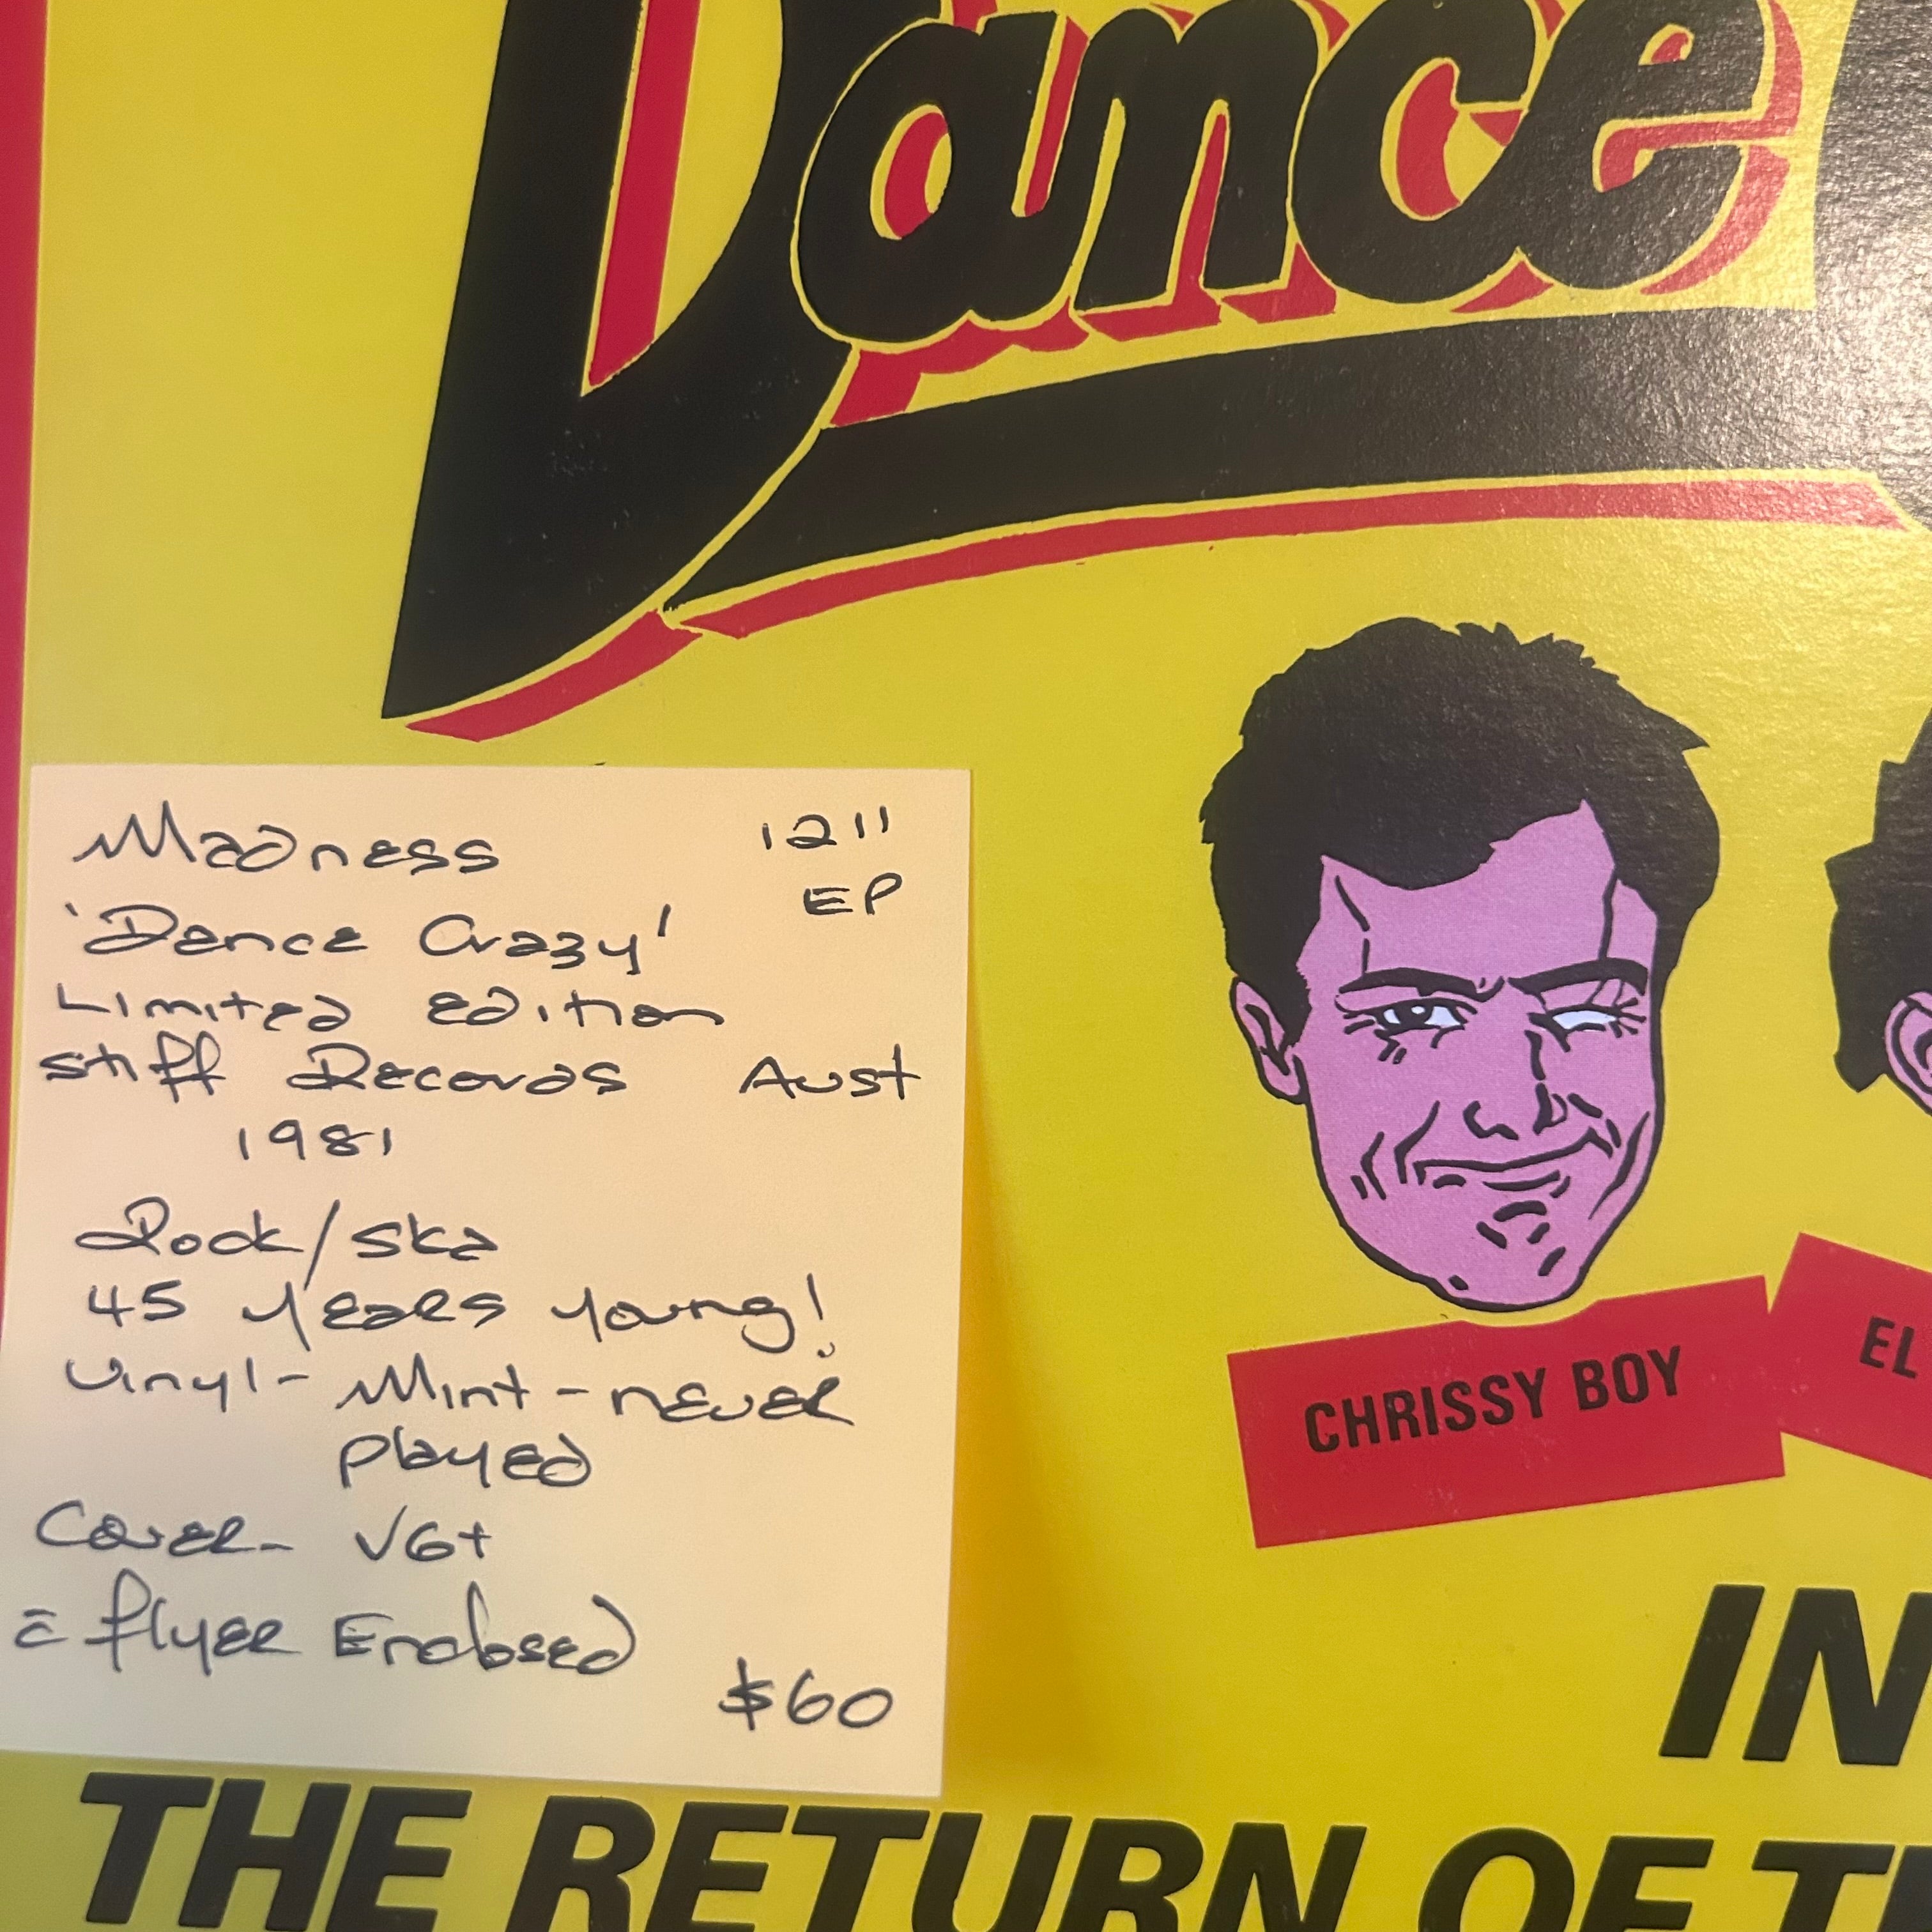 Dance
Madness 12"
EP
'Dance Crazy'
Limited Edition
Stiff Records Aust
1981
Rock/Ska
45 Years Young!
Vinyl - Mint - never
played
Cover - VG+
c̄ flyer Enclosed
$60
CHRISSY BOY
EL
IN
THE RETURN OF T